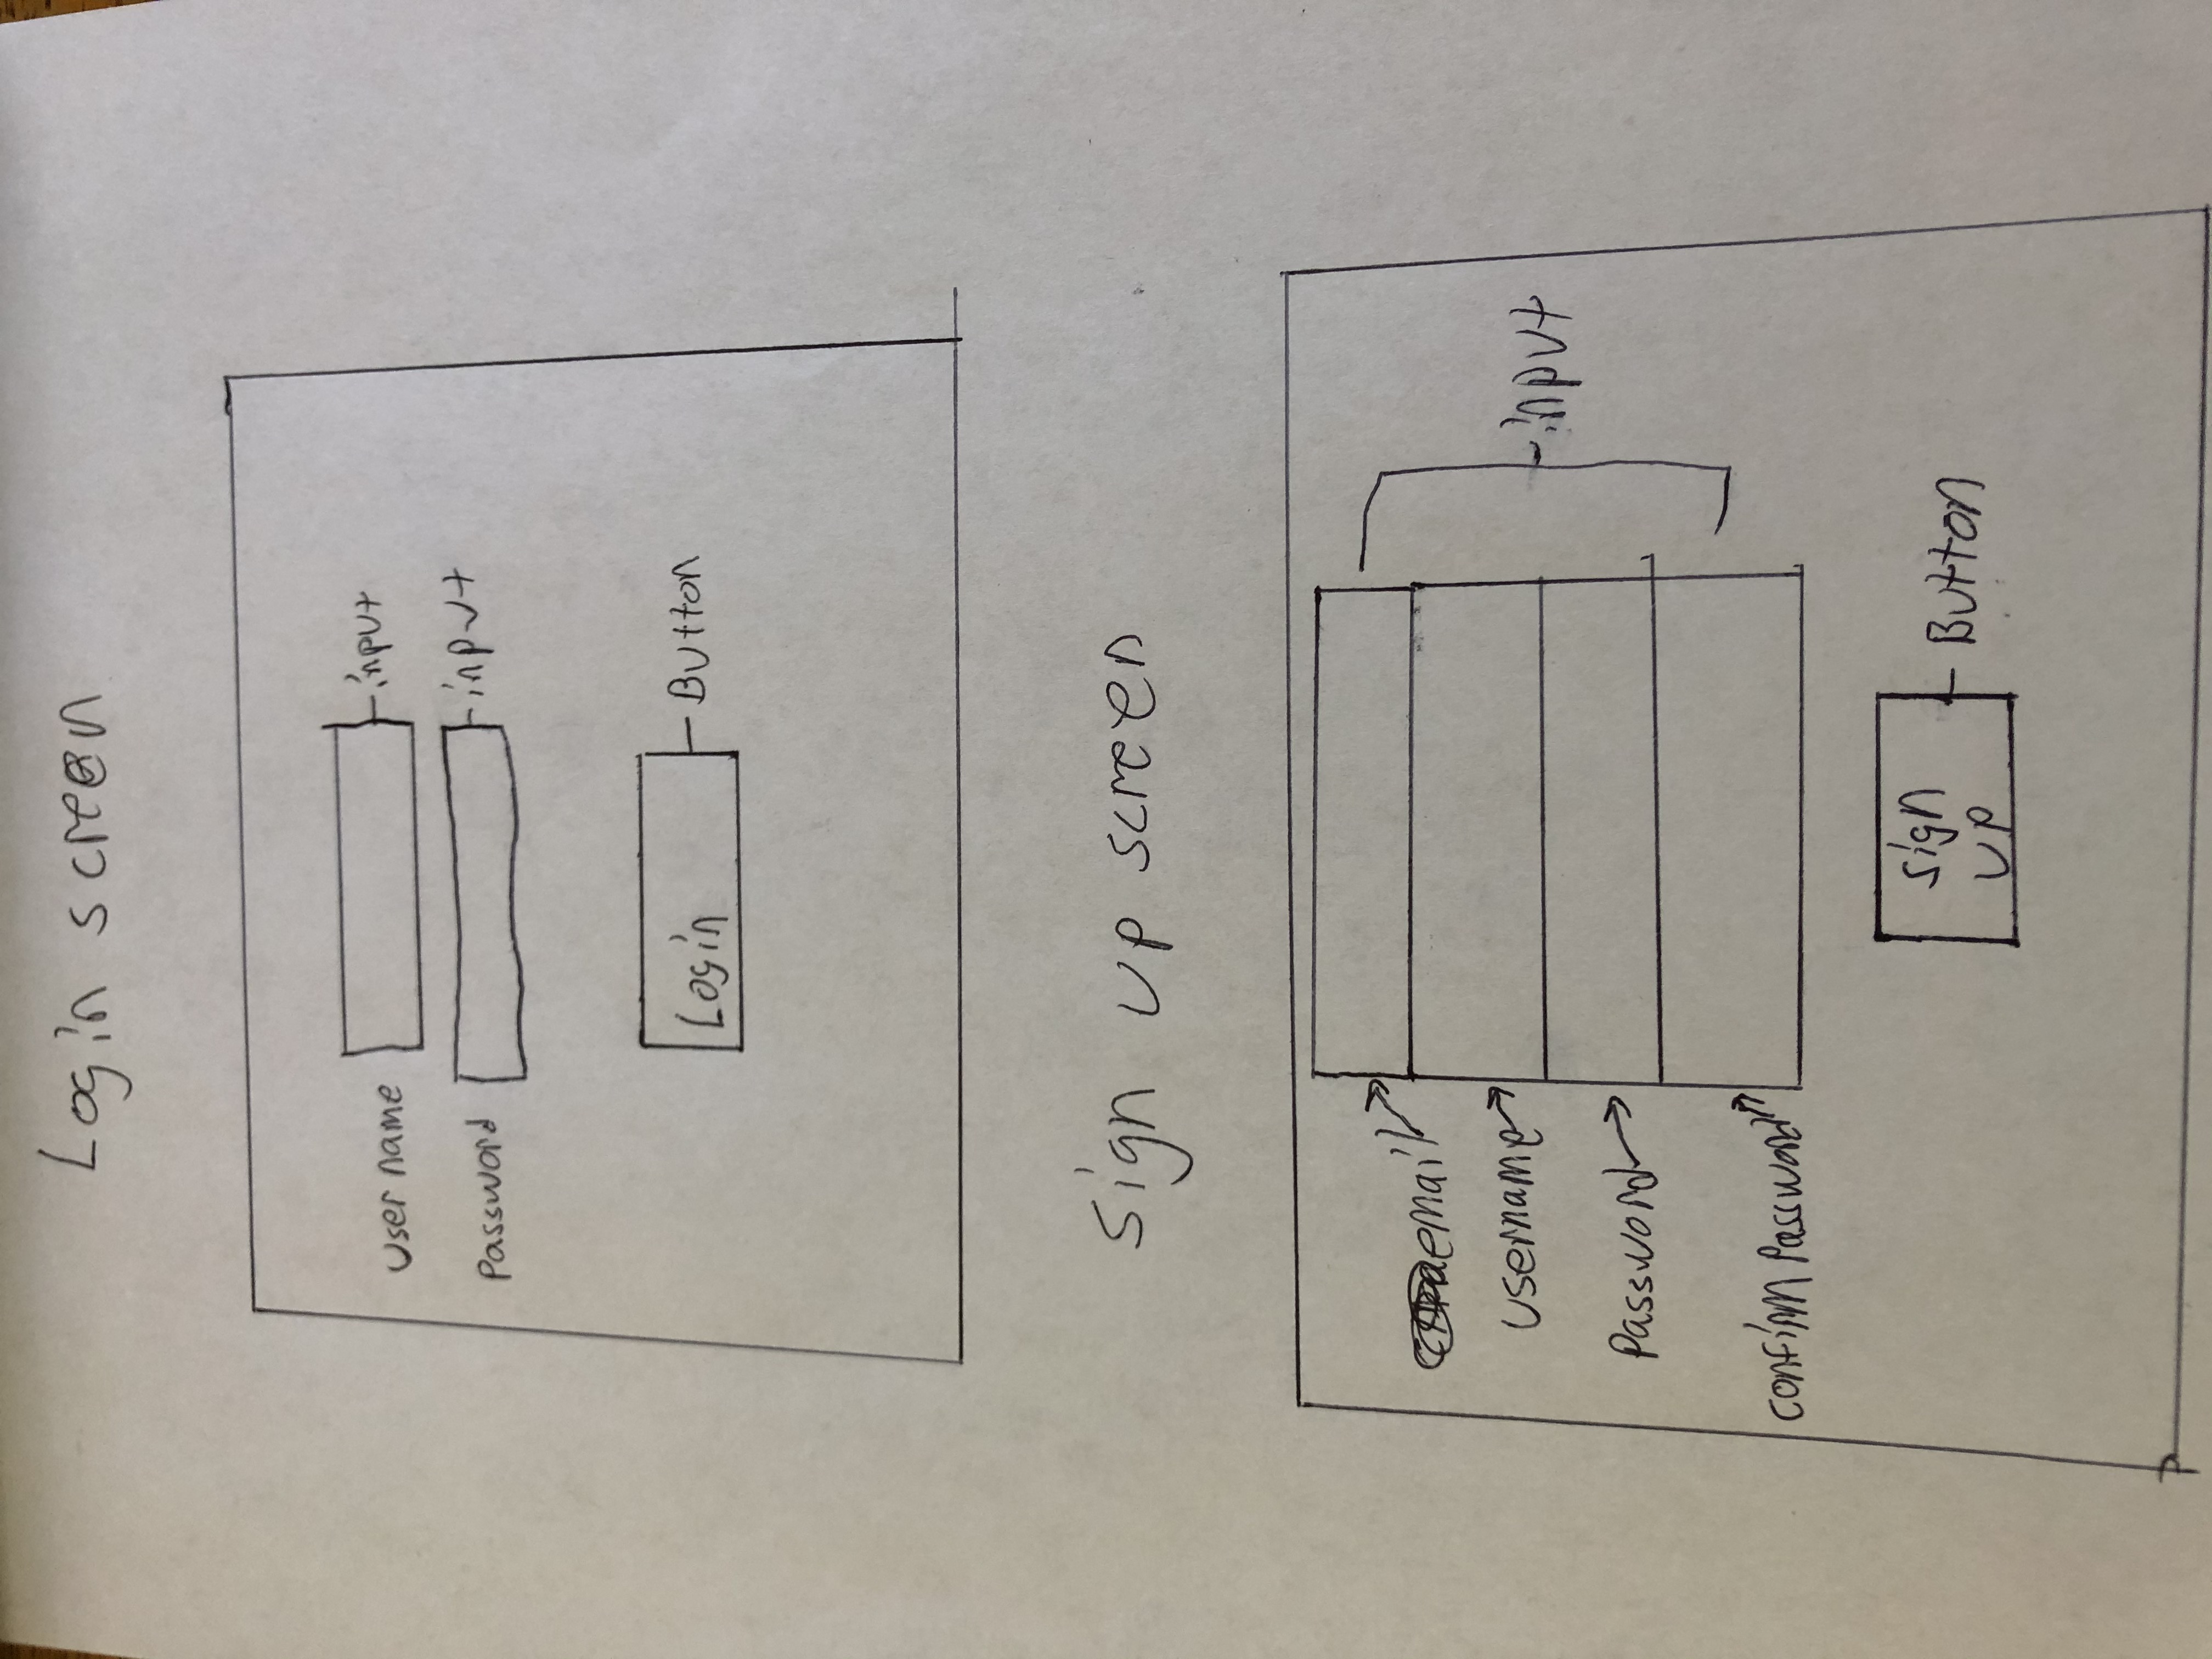 Login screen
User name
input
Password
input
Login
Button
Sign up screen
email
username
input
Password
confirm Password
sign
up
Button